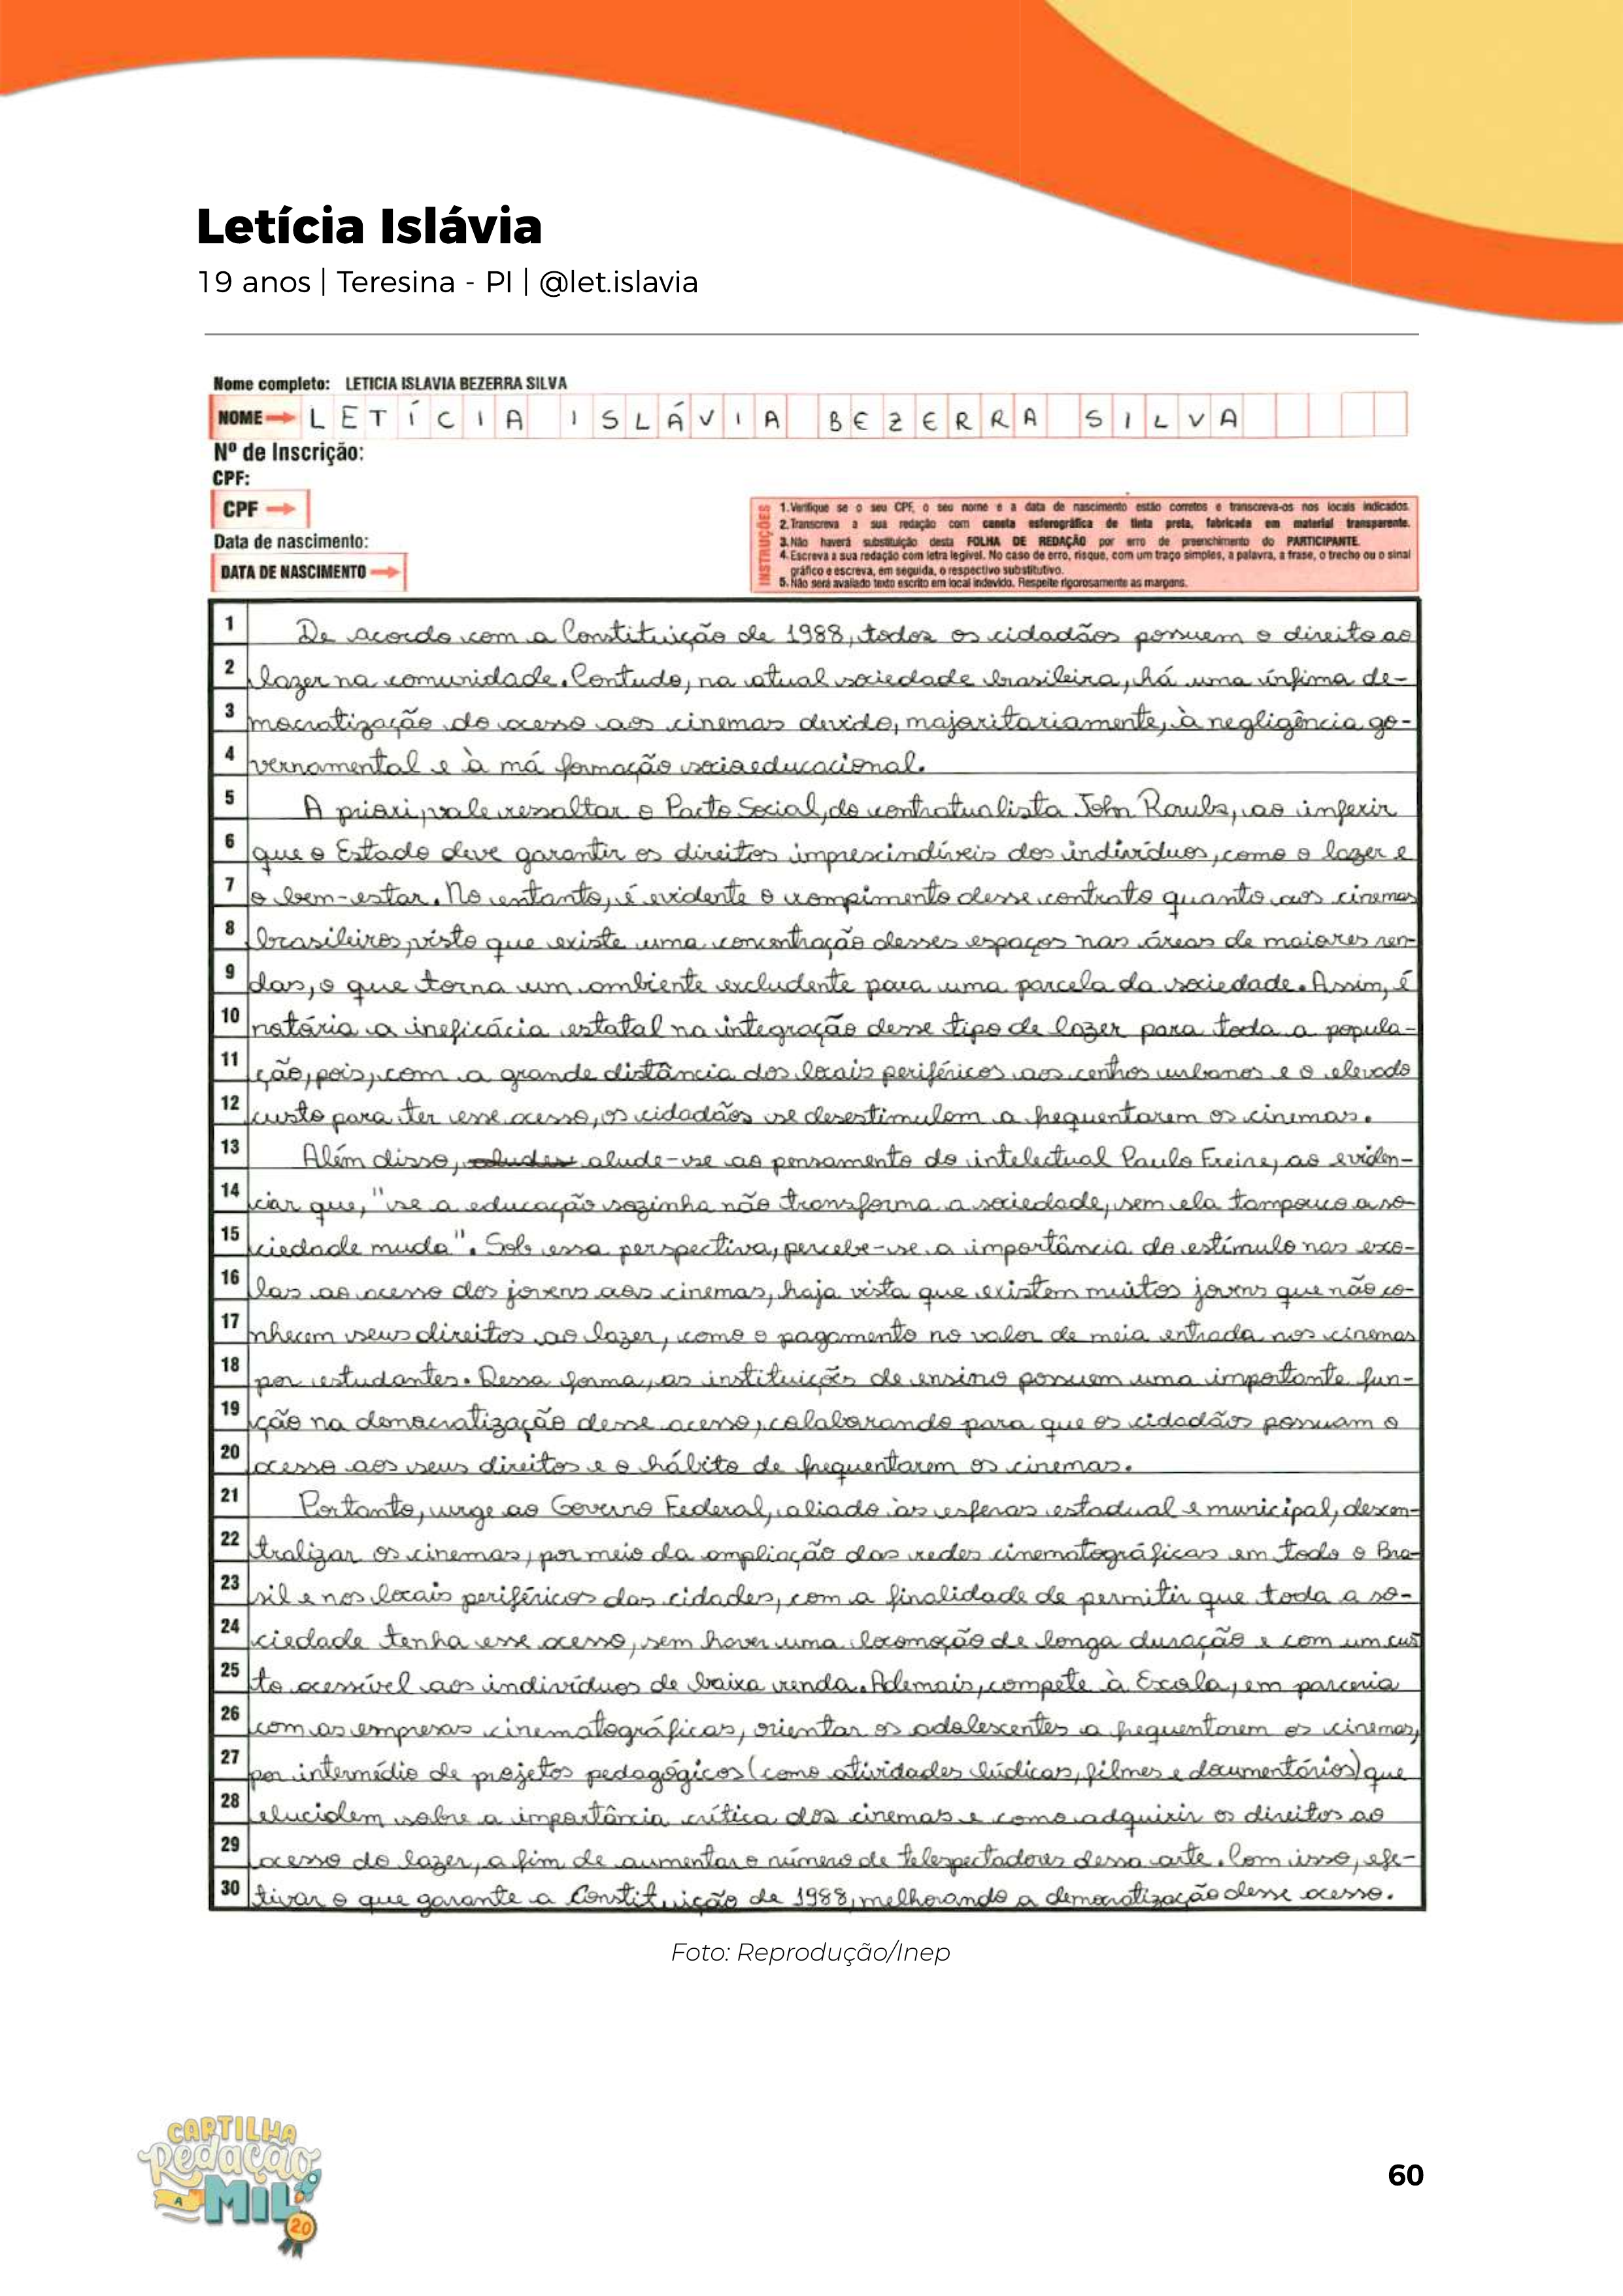 Letícia Islávia
19 anos | Teresina - PI | @let.islavia
Nome completo: LETICIA ISLAVIA BEZERRA SILVA
NOME LETÍCIA ISLÁVIA BEZERRA SILVA
Nº de Inscrição:
CPF:
CPF
Data de nascimento:
DATA DE NASCIMENTO
INSTRUÇÕES
1. Verifique se o seu CPF, o seu nome e a data de nascimento estão corretos e transcreva-os nos locais indicados.
2. Transcreva a sua redação com caneta esferográfica de tinta preta, fabricada em material transparente.
3. Não haverá substituição desta FOLHA DE REDAÇÃO por erro de preenchimento do PARTICIPANTE.
4. Escreva a sua redação com letra legível. No caso de erro, risque, com um traço simples, a palavra, a frase, o trecho ou o sinal
gráfico e escreva, em seguida, o respectivo substitutivo.
5. Não será avaliado texto escrito em local indevido. Respeite rigorosamente as margens.
1 De acordo com a Constituição de 1988, todos os cidadãos possuem o direito ao
2 lazer na comunidade. Contudo, na atual sociedade brasileira, há uma ínfima de-
3 mocratização do acesso aos cinemas devido, majoritariamente, à negligência go-
4 vernamental e à má formação socioeducacional.
5 A priori, vale ressaltar o Pacto Social, do contratualista John Rawls, ao inferir
6 que o Estado deve garantir os direitos imprescindíveis dos indivíduos, como o lazer e
7 o bem-estar. No entanto, é evidente o rompimento desse contrato quanto aos cinemas
8 brasileiros, visto que existe uma concentração desses espaços nas áreas de maiores ren-
9 das, o que torna um ambiente excludente para uma parcela da sociedade. Assim, é
10 notória a ineficácia estatal na integração desse tipo de lazer para toda a popula-
11 ção, pois, com a grande distância dos locais periféricos aos centros urbanos e o elevado
12 custo para ter esse acesso, os cidadãos se desestimulam a frequentarem os cinemas.
13 Além disso, alude-se ao pensamento do intelectual Paulo Freire, ao eviden-
14 ciar que, "se a educação sozinha não transforma a sociedade, sem ela tampouco a so-
15 ciedade muda". Sob essa perspectiva, percebe-se a importância do estímulo nas esco-
16 las ao acesso dos jovens aos cinemas, haja vista que existem muitos jovens que não co-
17 nhecem seus direitos ao lazer, como o pagamento no valor de meia entrada nos cinemas
18 por estudantes. Dessa forma, as instituições de ensino possuem uma importante fun-
19 ção na democratização desse acesso, colaborando para que os cidadãos possuam o
20 acesso aos seus direitos e o hábito de frequentarem os cinemas.
21 Portanto, urge ao Governo Federal, aliado às esferas estadual e municipal, descen-
22 tralizar os cinemas, por meio da ampliação das redes cinematográficas em todo o Bra-
23 sil e nos locais periféricos das cidades, com a finalidade de permitir que toda a so-
24 ciedade tenha esse acesso, sem haver uma locomoção de longa duração e com um cus
25 to acessível aos indivíduos de baixa renda. Ademais, compete à Escola, em parceria
26 com as empresas cinematográficas, orientar os adolescentes a frequentarem os cinemas,
27 por intermédio de projetos pedagógicos (como atividades lúdicas, filmes e documentários) que
28 elucidem sobre a importância crítica dos cinemas e como adquirir os direitos ao
29 acesso do lazer, a fim de aumentar o número de telespectadores dessa arte. Com isso, efe-
30 tivar o que garante a Constituição de 1988, melhorando a democratização desse acesso.
Foto: Reprodução/Inep
CARTILHA
Redação
A MIL
2.0
60